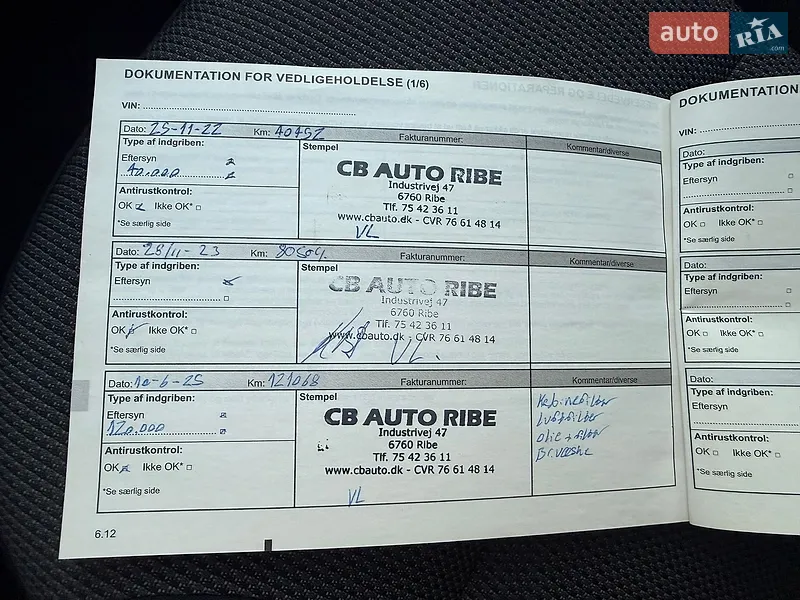 auto RIA
.com
DOKUMENTATION FOR VEDLIGEHOLDELSE (1/6)
VIN:
Dato: 25-11-22 Km: 40452 Fakturanummer:
Type af indgriben:
Eftersyn
40.000
Antirustkontrol:
OK Ikke OK*
*Se særlig side
Stempel
CB AUTO RIBE
Industrivej 47
6760 Ribe
Tlf. 75 42 36 11
www.cbauto.dk - CVR 76 61 48 14
VL
Kommentar/diverse
Dato: 28/11-23 Km: 80504. Fakturanummer:
Type af indgriben:
Eftersyn
Antirustkontrol:
OK Ikke OK*
*Se særlig side
Stempel
CB AUTO RIBE
Industrivej 47
6760 Ribe
Tlf. 75 42 36 11
www.cbauto.dk - CVR 76 61 48 14
VL.
Kommentar/diverse
Dato: 10-6-25 Km: 121068 Fakturanummer:
Type af indgriben:
Eftersyn
120.000
Antirustkontrol:
OK Ikke OK*
*Se særlig side
Stempel
CB AUTO RIBE
Industrivej 47
6760 Ribe
Tlf. 75 42 36 11
www.cbauto.dk - CVR 76 61 48 14
VL
Kommentar/diverse
Kabinefilter
Luftfilter
olie + filter
6.12
DOKUMENTATION
VIN:
Dato:
Type af indgriben:
Eftersyn
Antirustkontrol:
OK Ikke OK*
*Se særlig side
Dato:
Type af indgriben:
Eftersyn
Antirustkontrol:
OK Ikke OK*
*Se særlig side
Dato:
Type af indgriben:
Eftersyn
Antirustkontrol:
OK Ikke OK*
*Se særlig side